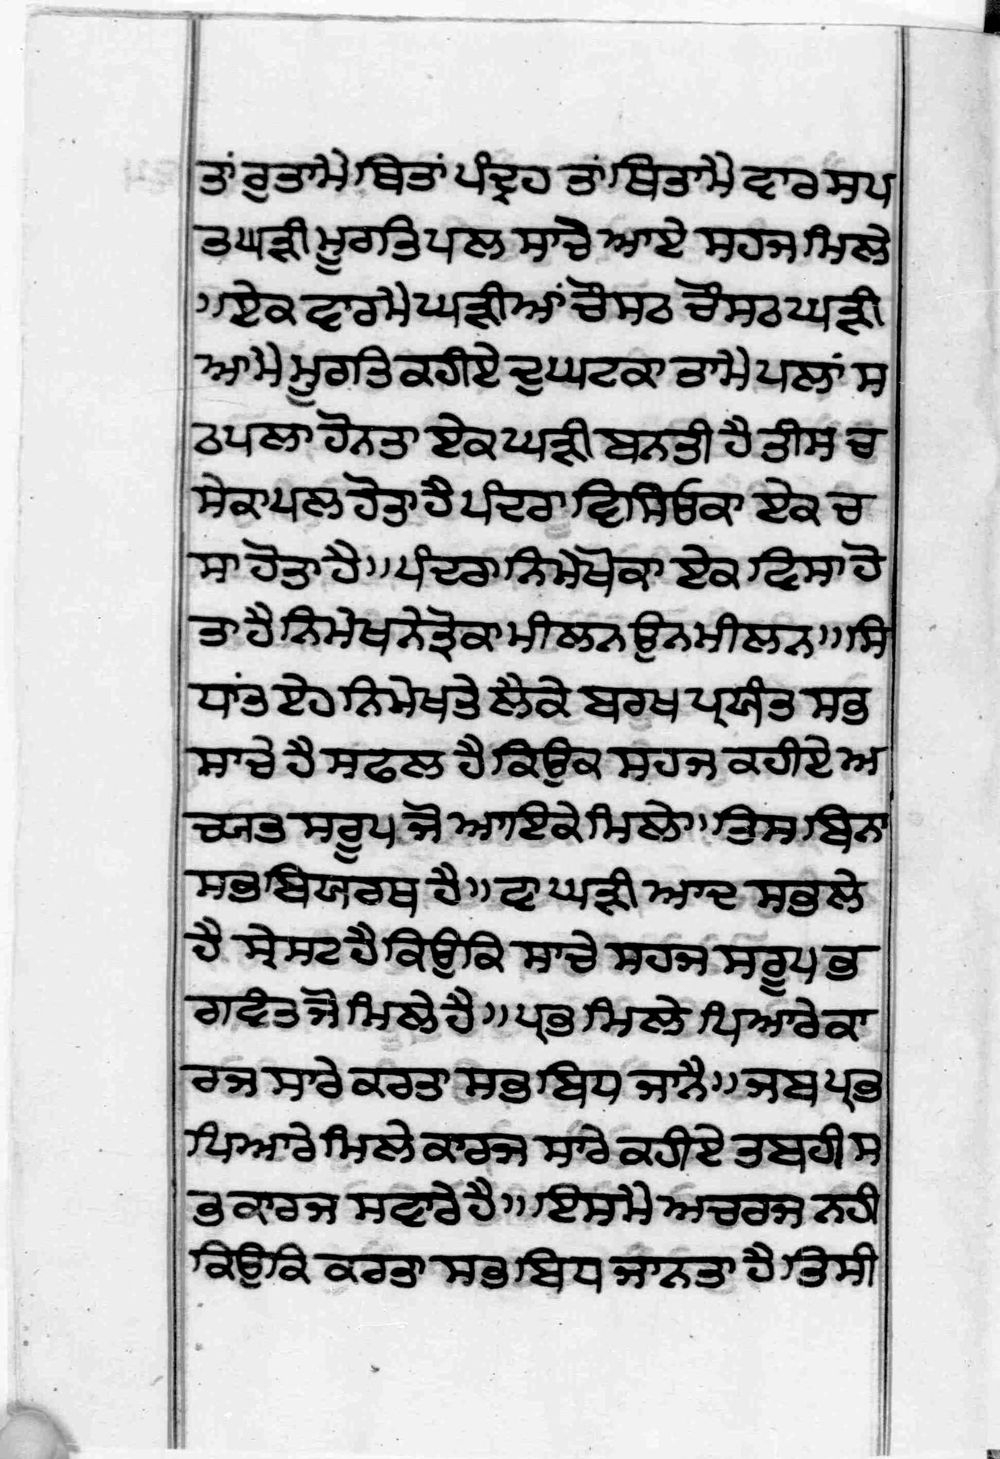 ਤਾਂ ਰੁਤਾਮੇ ਥਿਤਾਂ ਪੰਦ੍ਰਹ ਤਾਂ ਥਿਤਾਮੈ ਵਾਰ ਸਪ
ਤ ਘੜੀ ਮੂਰਤਿ ਪਲ ਸਾਚੇ ਆਏ ਸਹਜ ਮਿਲੇ
॥ਏਕ ਵਾਰਮੈ ਘੜੀਆਂ ਚੌਸਠ ਚੌਸਠ ਘੜੀ
ਆਮੈ ਮੂਰਤਿ ਕਹੀਏ ਦੁਘਟਕਾ ਤਾਮੇ ਪਲਾਂ ਸ
ਠ ਪਲਾ ਹੋਨਤਾ ਏਕ ਘੜੀ ਬਨਤੀ ਹੈ ਤੀਸ ਚ
ਸੇਕਾ ਪਲ ਹੋਤਾ ਹੈ ਪੰਦਰਾ ਵਿਸਿਓਕਾ ਏਕ ਚ
ਸਾ ਹੋਤਾ ਹੈ॥ਪੰਦਰਾ ਨਿਮੇਖੋਕਾ ਏਕ ਵਿਸਾ ਹੋ
ਤਾ ਹੈ ਨਿਮੇਖ ਨੇਤ੍ਰੋਕਾ ਮੀਲਨ ਉਨਮੀਲਨ॥ਸਿ
ਧਾਂਤ ਏਹ ਨਿਮੇਖਤੇ ਲੈਕੇ ਬਰਖ ਪ੍ਰਯੰਤ ਸਭ
ਸਾਚੇ ਹੈ ਸਫਲ ਹੈ ਕਿਉਕ ਸਹਜ ਕਹੀਏ ਅ
ਚਯਤ ਸਰੂਪ ਜੋ ਆਇਕੇ ਮਿਲੇ॥ਤਿਸ ਬਿਨਾ
ਸਭ ਬਿਯਰਥ ਹੈ॥ਵਾ ਘੜੀ ਆਦ ਸਭਲੇ
ਹੈ ਸ੍ਰੇਸਟ ਹੈ ਕਿਉਕਿ ਸਾਚੇ ਸਹਜ ਸਰੂਪ ਭ
ਗਵੰਤ ਜੋ ਮਿਲੇ ਹੈ॥ਪ੍ਰਭ ਮਿਲੇ ਪਿਆਰੇ ਕਾ
ਰਜ ਸਾਰੇ ਕਰਤਾ ਸਭ ਬਿਧ ਜਾਨੈ॥ਜਬ ਪ੍ਰਭ
ਪਿਆਰੇ ਮਿਲੇ ਕਾਰਜ ਸਾਰੇ ਕਹੀਏ ਤਬਹੀ ਸ
ਭ ਕਾਰਜ ਸਵਾਰੇ ਹੈ॥ਇਸਮੈ ਅਚਰਜ ਨਹੀ
ਕਿਉਕਿ ਕਰਤਾ ਸਭ ਬਿਧ ਜਾਨਤਾ ਹੈ ਤਿਸੀ